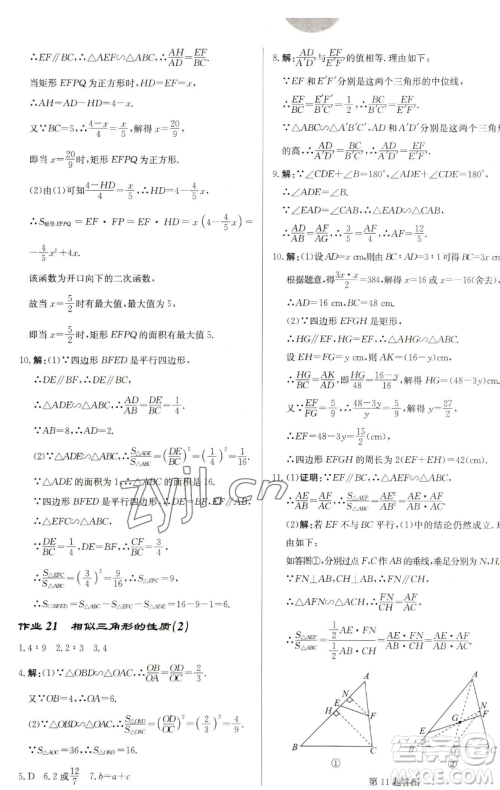 ∴EF∥BC,∴△AEF∽△ABC,∴AH/AD=EF/BC.
当矩形 EFPQ 为正方形时,EF=HD=x,
又∵BC=5,∴(4-x)/4=x/5,解得 x=20/9,
即当 x=20/9时,矩形 EFPQ 为正方形.
(2)由(1)可知(4-HD)/4=x/5,∴HD=4-4/5x,
∴S矩形EFPQ=EF·FP=EF·HD=x(4-4/5x)
=-4/5x²+4x.
该函数为开口向下的二次函数,
故当 x=5/2时有最大值,最大值为 5.
即当 x=5/2时,矩形 EFPQ 的面积有最大值 5.
10.解:(1)∵四边形 BFED 是平行四边形,
∴DE∥BF,∴DE∥BC,
∴△ADE∽△ABC,∴AD/AB=DE/BC=1/4.
∵AB=8,∴AD=2.
(2)∵△ADE∽△ABC,∴S△ADE/S△ABC=(DE/BC)²=(1/4)²=1/16.
∵△ADE 的面积为 1,∴△ABC 的面积为 16.
∵四边形 BFED 是平行四边形,
∴EF∥AB,∴△EFC∽△ABC.
∵DE/BC=1/4,∴CF/BC=3/4,
∴S△EFC/S△ABC=(3/4)²=9/16,
∴S△EFC=9,
∴S▱BFED=S△ABC-S△EFC-S△ADE=16-9-1=6.
作业 21 相似三角形的性质(2)
1.4∶9 2.2∶3 3.4
4.解:(1)∵△OBD∽△OAC,∴OB/OA=OD/OC=2/3.
又∵OA=6,∴OB=4.
(2)∵△OBD∽△OAC,∴S△OBD/S△OAC=(OD/OC)²=(2/3)²=4/9.
又∵S△OAC=36,∴S△OBD=16.
5.D 6.2或12/7 7.b=a+c
8.解:AD/A′D′与EF/E′F′的值相等.理由如下:
∵EF 和 E′F′分别是这两个三角形的中位线,
∴EF/BC=E′F′/B′C′=1/2,∴BC/B′C′=EF/E′F′.
∵△ABC∽△A′B′C′,AD
的高,∴AD/A′D′=BC/B′C′,∴AD/A′D′=EF/E′F′.
9.解:∵∠CDE+∠B=180°,∠CDE+∠ADE=180°,
∴∠ADE=∠B.
又∵∠DAE=∠BAC,∴△ADE∽△ABC,
∴AD/AB=AF/AG,∴AF/5=1/2,∴AF=5/2.
10.解:(1)设 AD=x cm,则由 BC∶AD=3∶1 可得
根据题意,得3x·x/2=384,解得 x=16 或 x=-16(舍去),
∴AD=16 cm,BC=48 cm.
(2)∵四边形 EFGH 是矩形,
∴HG∥EF,HG=EF,∴△AHG∽△ABC.
设 EH=FG=y cm,则 AK=(16-y)cm,
∴HG/BC=AK/AD,即HG/48=(16-y)/16,∴HG=(48-3y)cm.
又∵EF/FG=5/9,∴(48-3y)/y=5/9,解得 y=27/2,
∴EF=48-3y=15/2(cm),
∴四边形 EFGH 的周长为 2(EF+EH)=42(cm).
11.(1)证明:∵EF∥BC,∴△AEF∽△ABC,
∴AE/AB=AF/AC,∴S△AEF/S△ABC=AE/AB·AF/AC=AE·AF/AB·AC.
(2)解:若 EF 不与 BC 平行,(1)中的结论仍然成立.
由如下:
如答图①,分别过点 F,C 作 AB 的垂线,垂足分别为 N,H.
∵FN⊥AB,CH⊥AB,
∴FN∥CH,∴△AFN∽△ACH,
∴FN/CH=AF/AC,
∴S△AEF/S△ABC=AE·AF/AB·AC.
A
N
H
E
F
B
C
①
A
E
G
F
B
C
②
第 11 题答图
zyjl.cn